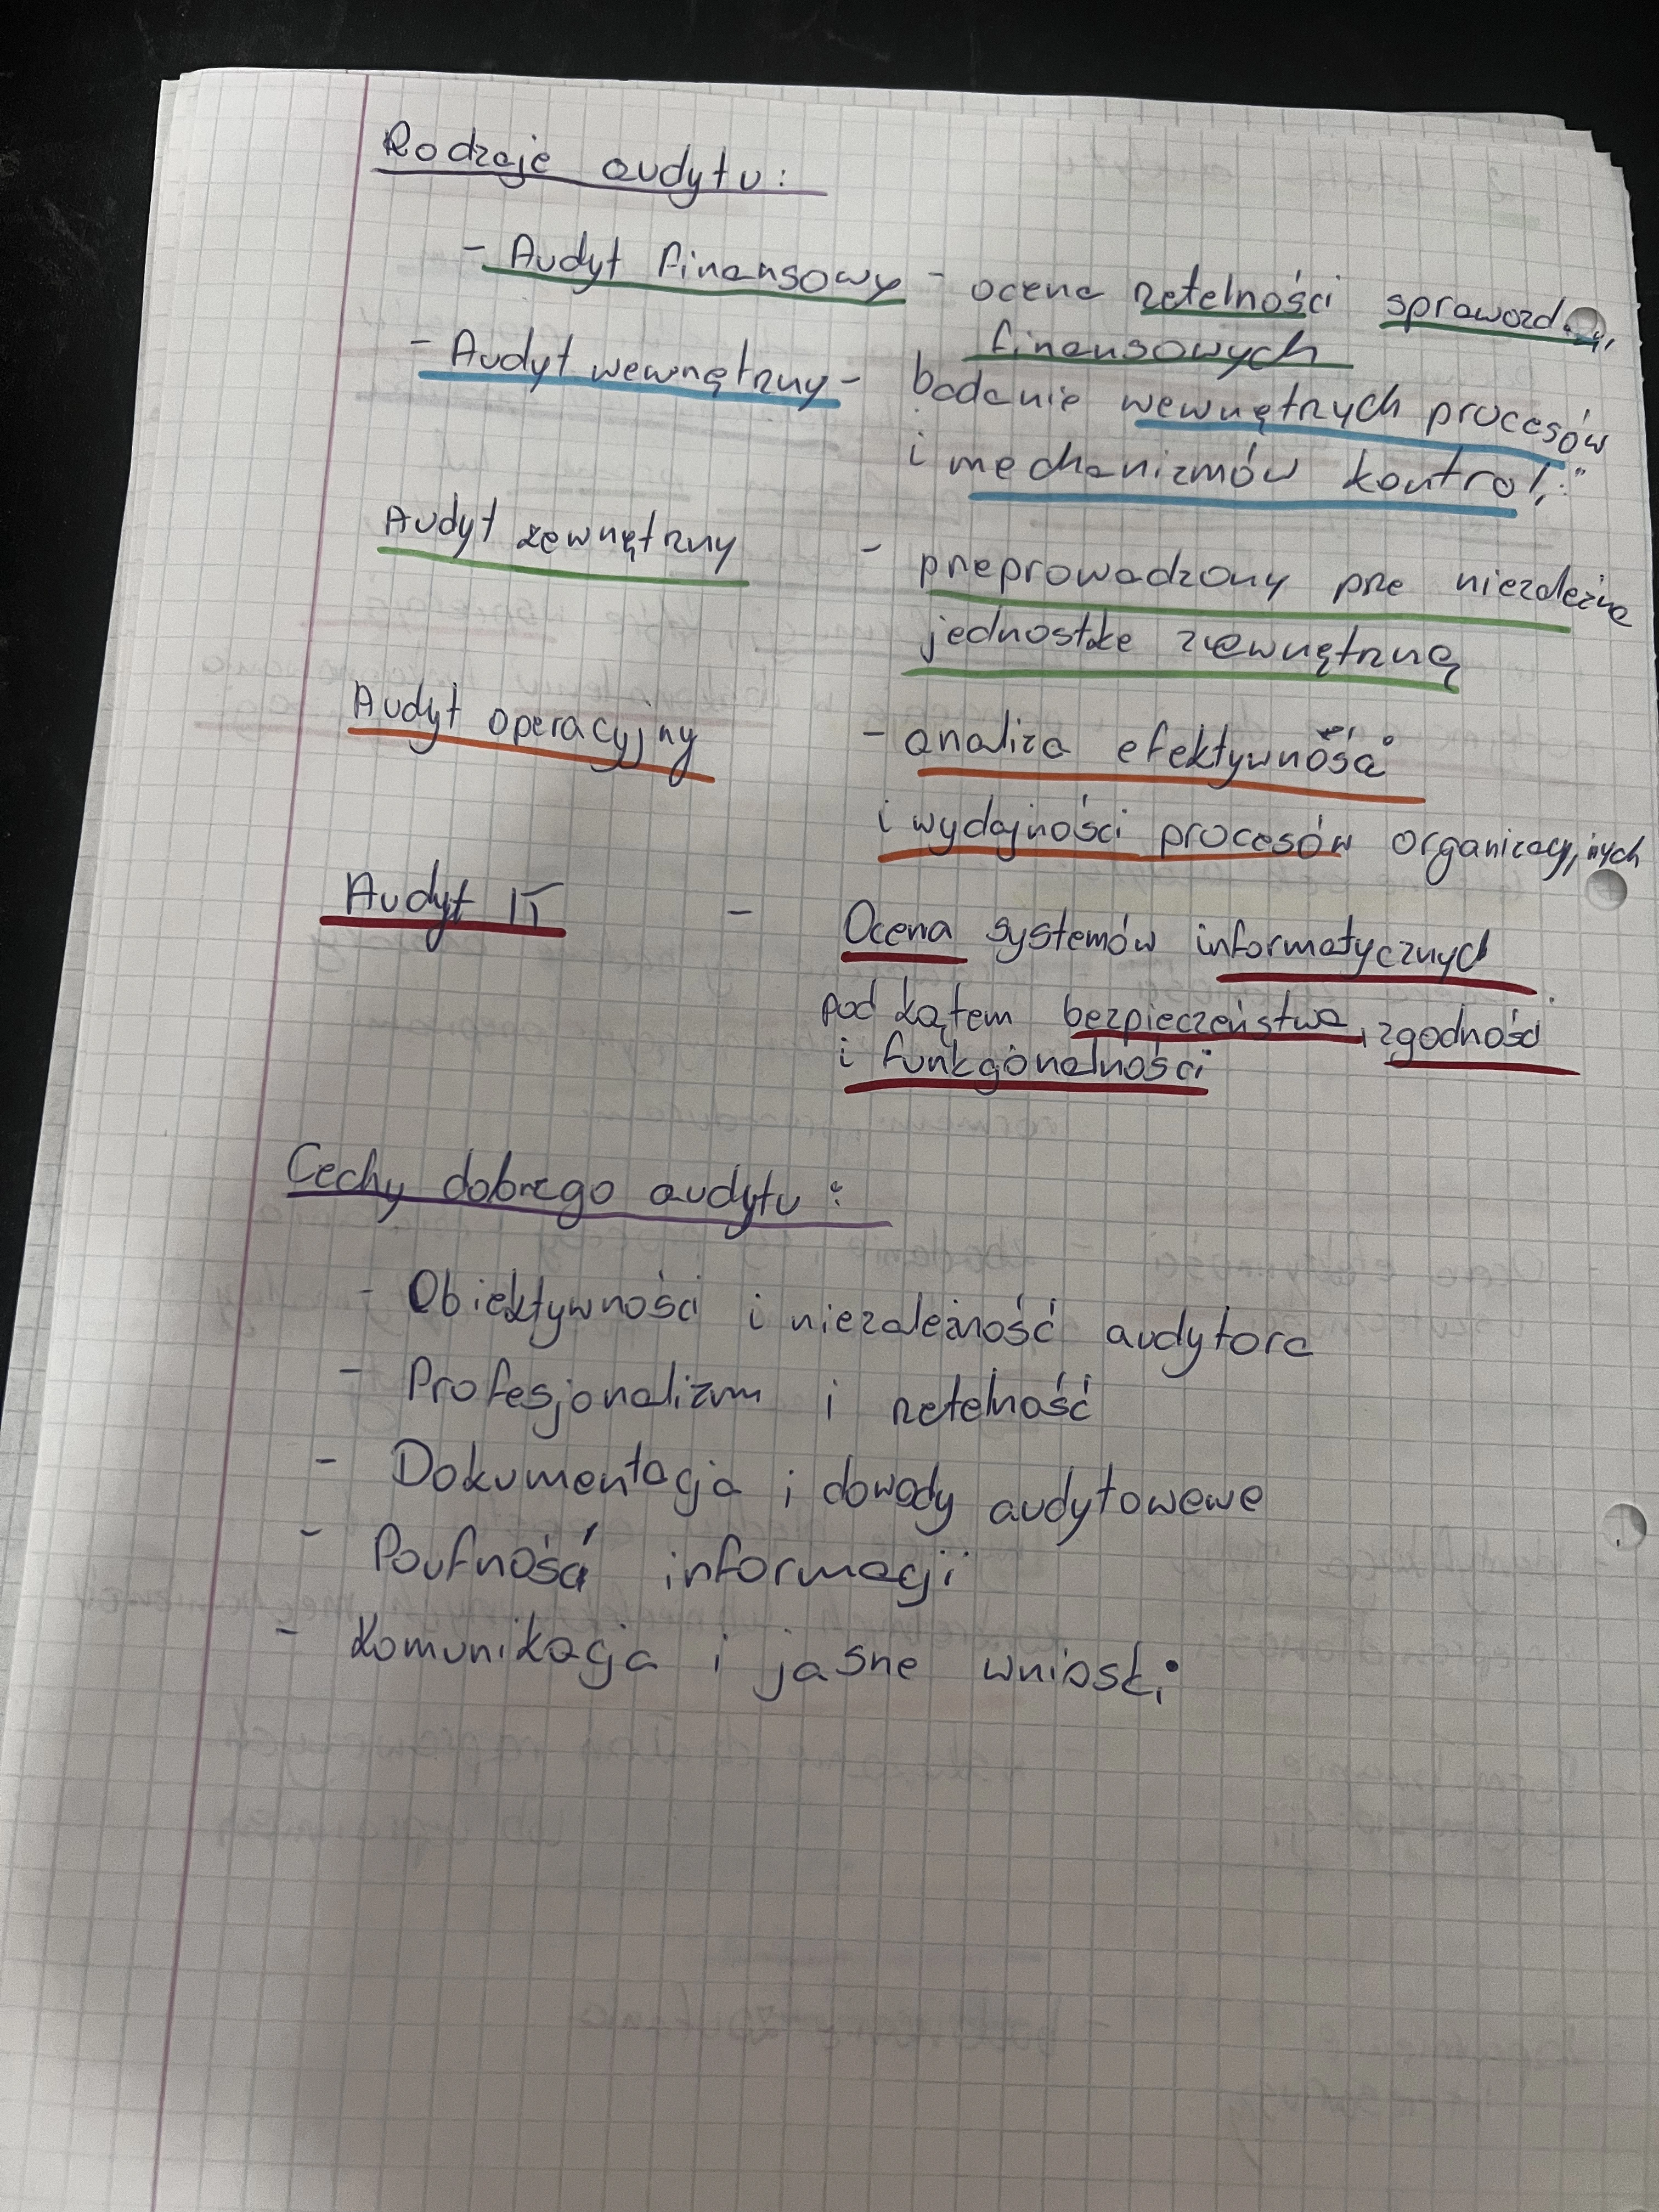 Rodzaje audytu:
- Audyt finansowy - ocena rzetelności sprawozd.
finansowych
- Audyt wewnętrzny - badanie wewnętrzych procesów
i mechanizmów kontroli
Audyt zewnętrzny - przeprowadzony prze niezależne
jednostke zewnętrzną
Audyt operacyjny - analiza efektywnośći
i wydajności procesów organizacyjnych
Audyt IT - Ocena systemów informatycznych
pod kątem bezpieczeństwa, zgodności
i funkcjonalności
Cechy dobrego audytu:
- Obiektywności i niezależność audytora
- Profesjonalizm i rzetelność
- Dokumentacja i dowody audytowewe
- Poufność informacji
- Komunikacja i jasne wnioski